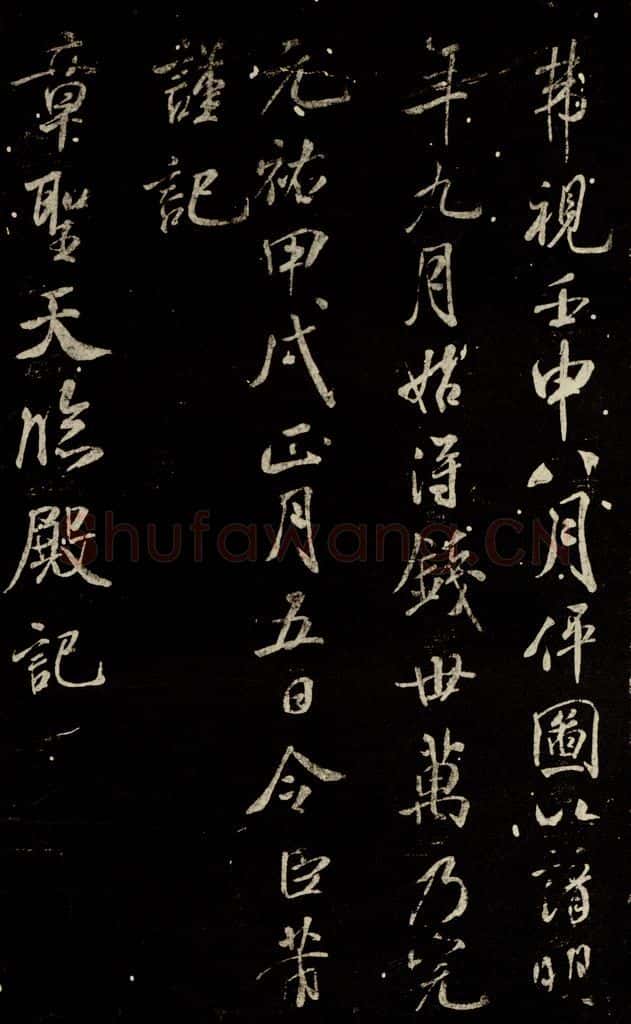 韨視壬申八月伻圖以請明
年九月始得錢卅萬乃完
元祐甲戌正月五日令臣芾
謹記
章聖天臨殿記
Shufawang.CN